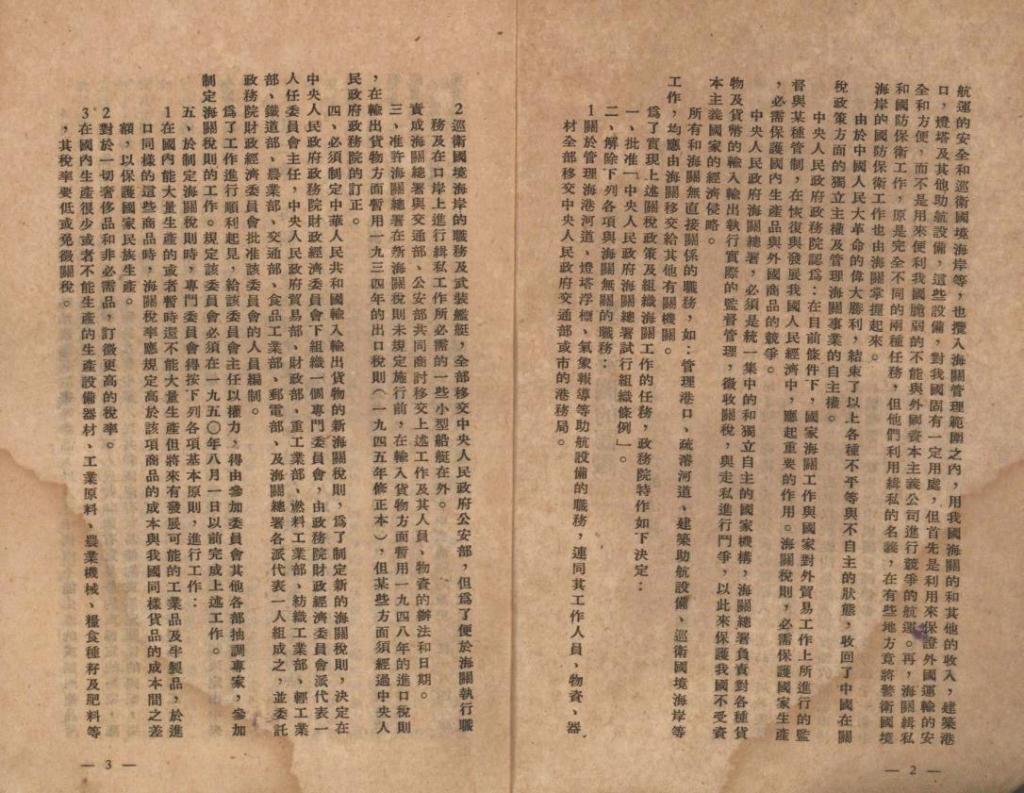 航運的安全和巡衛國境海岸等，也攬入海關管理範圍之內，用我國海關的和其他的收入，建築港
口，燈塔及其他助航設備，這些設備，對我國固有一定用處，但首先是利用來保證外國運輸的安
全和方便，而不是用來便利我國脆弱的不能與外國資本主義公司進行競爭的航運。再，海關緝私
和國防保衛工作，原是完全不同的兩種任務，但他們利用緝私的名義，在有些地方竟將警衛國境
海岸的國防保衛工作也由海關掌握起來。
由於中國人民大革命的偉大勝利，結束了以上各種不平等與不自主的狀態，收回了中國在關
稅政策方面的獨立主權及管理海關事業的自主權。
中央人民政府政務院認爲：在目前條件下，國家海關工作與國家對外貿易工作上所進行的監
督與某種管制，在恢復與發展我國人民經濟中，應起重要的作用。海關稅則，必需保護國家生產
，必需保護國內生產品與外國商品的競爭。
中央人民政府海關總署，必須是統一集中的和獨立自主的國家機構，海關總署負責對各種貨
物及貨幣的輸入輸出執行實際的監督管理，徵收關稅，與走私進行鬥爭，以此來保護我國不受資
本主義國家的經濟侵略。
所有和海關無直接關係的職務，如：管理港口、疏濬河道、建築助航設備、巡衛國境海岸等
工作，均應由海關移交給其他有關機關。
爲了實現上述關稅政策及組織海關工作的任務，政務院特作如下決定：
一、批准「中央人民政府海關總署試行組織條例」。
二、解除下列各項與海關無關的職務：
1關於管理海港河道、燈塔浮標、氣象報導等助航設備的職務，連同其工作人員、物資、器
材全部移交中央人民政府交通部或市的港務局。
— 2 —
2巡衛國境海岸的職務及武裝艦艇，全部移交中央人民政府公安部，但爲了便於海關執行職
務及在口岸上進行緝私工作所必需的一些小型船艇在外。
責成海關總署與交通部、公安部共同商討移交上述工作及其人員、物資的辦法和日期。
三、准許海關總署在新海關稅則未規定施行前，在輸入貨物方面暫用一九四八年的進口稅則
，在輸出貨物方面暫用一九三四年的出口稅則（一九四五年修正本），但某些方面須經過中央人
民政府政務院的訂正。
四、必須制定中華人民共和國輸入輸出貨物的新海關稅則，爲了制定新的海關稅則，決定在
中央人民政府政務院財政經濟委員會下組織一個專門委員會，由政務院財政經濟委員會派代表一
人任委員會主任，中央人民政府貿易部、財政部、重工業部、燃料工業部、紡織工業部、輕工業
部、鐵道部、農業部、交通部、食品工業部、郵電部、及海關總署各派代表一人組成之，並委託
政務院財政經濟委員會批准該委員會的人員編制。
爲了工作進行順利起見，給該委員會主任以權力，得由參加委員會其他各部抽調專家，參加
制定海關稅則的工作。規定該委員會必須在一九五〇年八月一日以前完成上述工作。
五、於制定海關稅則時，專門委員會得按下列各項基本原則，進行工作：
1在國內能大量生產的或者暫時還不能大量生產但將來有發展可能的工業品及半製品，於進
口同樣的這些商品時，海關稅率應規定高於該項商品的成本與我國同樣貨品的成本間之差
額，以保護國家民族生產。
2對於一切奢侈品和非必需品，訂徵更高的稅率。
3在國內生產很少或者不能生產的生產設備器材、工業原料、農業機械、糧食種籽及肥料等
，其稅率要低或免徵關稅。
— 3 —